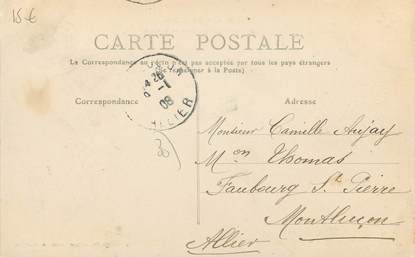 15 €
CARTE POSTALE
La Correspondance au recto n'est pas acceptée par tous les pays étrangers
(Se renseigner à la Poste)
Correspondance
Adresse
26
-1
08
ALLIER
Monsieur Camille Aujay
Mon Thomas
Faubourg St Pierre
Montluçon
Allier